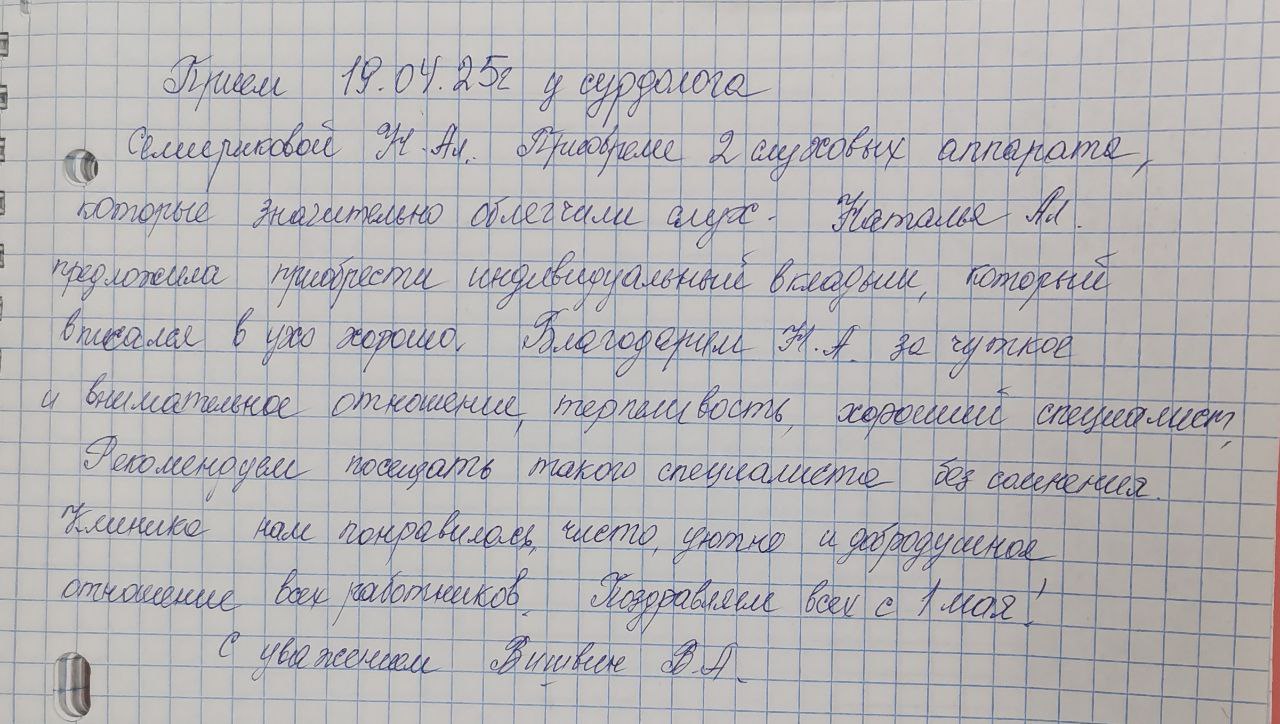 Прием 19.04.25г у сурдолога
Семериковой Н.Ал. Приобрели 2 слуховых аппарата,
которые значительно облегчили слух. Наталья Ал.
предложила приобрести индивидуальный вкладыш, который
вписался в ухо хорошо. Благодарим Н.А. за чуткое
и внимательное отношение, терпеливость, хороший специалист,
Рекомендуем посещать такого специалиста без сомнения.
Клиника нам понравилось, чисто, уютно и добродушное
отношение всех работников. Поздравляем всех с 1 мая!
С уважением В.А.